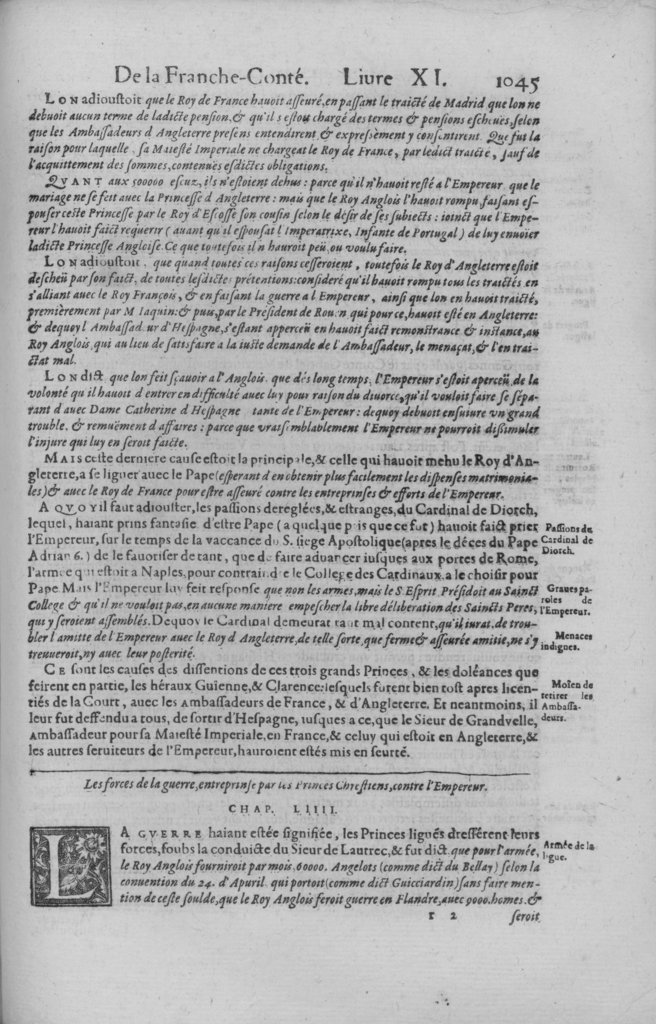 De la Franche-Conté. Liure XI. 1045
LON adioustoit que le Roy de France hauoit asseuré, en passant le traicté de Madrid que lon ne
debuoit aucun terme de ladicte pension, & qu'il s'estoit chargé des termes & pensions escheues, selon
que les Ambassadeurs d'Angleterre presens entendirent, & expressement y consentirent. Que fut la
raison pour laquelle, sa Maiesté Imperiale ne chargeat le Roy de France, par ledict traicté, sauf de
l'acquittement des sommes, contenues esdictes obligations.
QVANT aux 500000 escuz, ils n'estoient dehus: parce qu'il n'hauoit resté a l'Empereur que le
mariage ne se feit auec la Princesse d'Angleterre: mais que le Roy Anglois l'hauoit rompu, faisant es-
pouser ceste Princesse par le Roy d'Escosse son cousin selon le désir de ses subiects: ioinct que l'Empe-
reur l'hauoit faict requerir (auant qu'il espousat l'Imperatrixe, Infante de Portugal) de luy enuoier
ladicte Princesse Angloise. Ce que toutefois il n'hauroit peu, ou voulu faire.
LON adioustoit, que quand toutes ces raisons cesseroient, toutefois le Roy d'Angleterre estoit
descheü par son faict, de toutes lesdicte: prétentions: consideré qu'il hauoit rompu tous les traictés en
s'alliant auec le Roy François, & en faisant la guerre a l'Empereur, ainsi que lon en hauoit traicté,
premièrement par M Iaquin: & puis, par le Président de Rouen qui pource, hauoit esté en Angleterre:
& dequoy l'Ambassadeur d'Hespagne, s'estant apperceu en hauoit faict remonstrance & instance, au
Roy Anglois, qui au lieu de satisfaire a la iuste demande de l'Ambassadeur, le menaçat, & l'en trai-
ctat mal.
LON dict, que lon feit sçauoir a l'Anglois, que dés long temps, l'Empereur s'estoit aperceü, de la
volonté qu'il hauoit d'entrer en difficulté auec luy pour raison du diuorce, qu'il vouloit faire se sépa-
rant d'auec Dame Catherine d'Hespagne tante de l'Empereur: dequoy debuoit ensuiure vn grand
trouble, & remuement d'affaires: parce que vraisemblablement l'Empereur ne pourroit dißimuler
l'injure qui luy en seroit faicte.
MAIS ceste derniere cause estoit la principale, & celle qui hauoit mehu le Roy d'An-
gleterre, a se liguer auec le Pape (esperant d'en obtenir plus facilement les dispenses matrimonia-
les) & auec le Roy de France pour estre asseuré contre les entreprinses & efforts de l'Empereur.
A QVOY il faut adiouster, les passions dereglées, & estranges, du Cardinal de Diorch,
lequel, haiant prins fantasie d'estre Pape (a quelque pris que ce fut) hauoit faict prier
l'Empereur, sur le temps de la vaccance du S. siege Apostolique (apres le déces du Pape
Adrian 6.) de le fauoriser de tant, que de faire aduancer iusques aux portes de Rome,
l'armée qui estoit a Naples, pour contraindre le College des Cardinaux a le choisir pour
Pape. Mais l'Empereur luy feit response que non les armes, mais le S. Esprit Présidoit au Sainct
College & qu'il ne vouloit pas, en aucune maniere empescher la libre déliberation des Saincts Peres,
qui y seroient assemblés. Dequoy le Cardinal demeurat tant mal content, qu'il iurat, de trou-
bler l'amitte de l'Empereur auec le Roy d'Angleterre, de telle sorte, que ferme & asseurée amitie, ne s'y
treuueroit, ny auec leur posterité.
Passions de
Cardinal de
Diorch.
Graues pa-
roles de
l'Empereur.
Menaces
indignes.
CE sont les causes des dissentions de ces trois grands Princes, & les doléances que
feirent en partie, les héraux Guienne, & Clarence: lesquels furent bien tost apres licen-
tiés de la Court, auec les Ambassadeurs de France, & d'Angleterre. Et neantmoins, il
leur fut deffendu a tous, de sortir d'Hespagne, iusques a ce, que le Sieur de Grandvelle,
Ambassadeur pour sa Maiesté Imperiale, en France, & celuy qui estoit en Angleterre, &
les autres seruiteurs de l'Empereur, hauroient estés mis en seurté.
Moien de
retirer les
Ambassa-
deurs.
Les forces de la guerre, entreprinse par les Princes Chrestiens, contre l'Empereur.
CHAP. LIIII.
LA GVERRE haiant estée signifiée, les Princes ligués dressérent leurs
forces, soubs la conduicte du Sieur de Lautrec, & fut dict, que pour l'armée,
le Roy Anglois fourniroit par mois, 60000. Angelots (comme dict du Bellay) selon la
conuention du 24. d'Apuril, qui portoit (comme dict Guicciardin) sans faire men-
tion de ceste soulde, que le Roy Anglois feroit guerre en Flandre, auec 9000. homes, &
Armée de la
ligue.
r 2 seroit